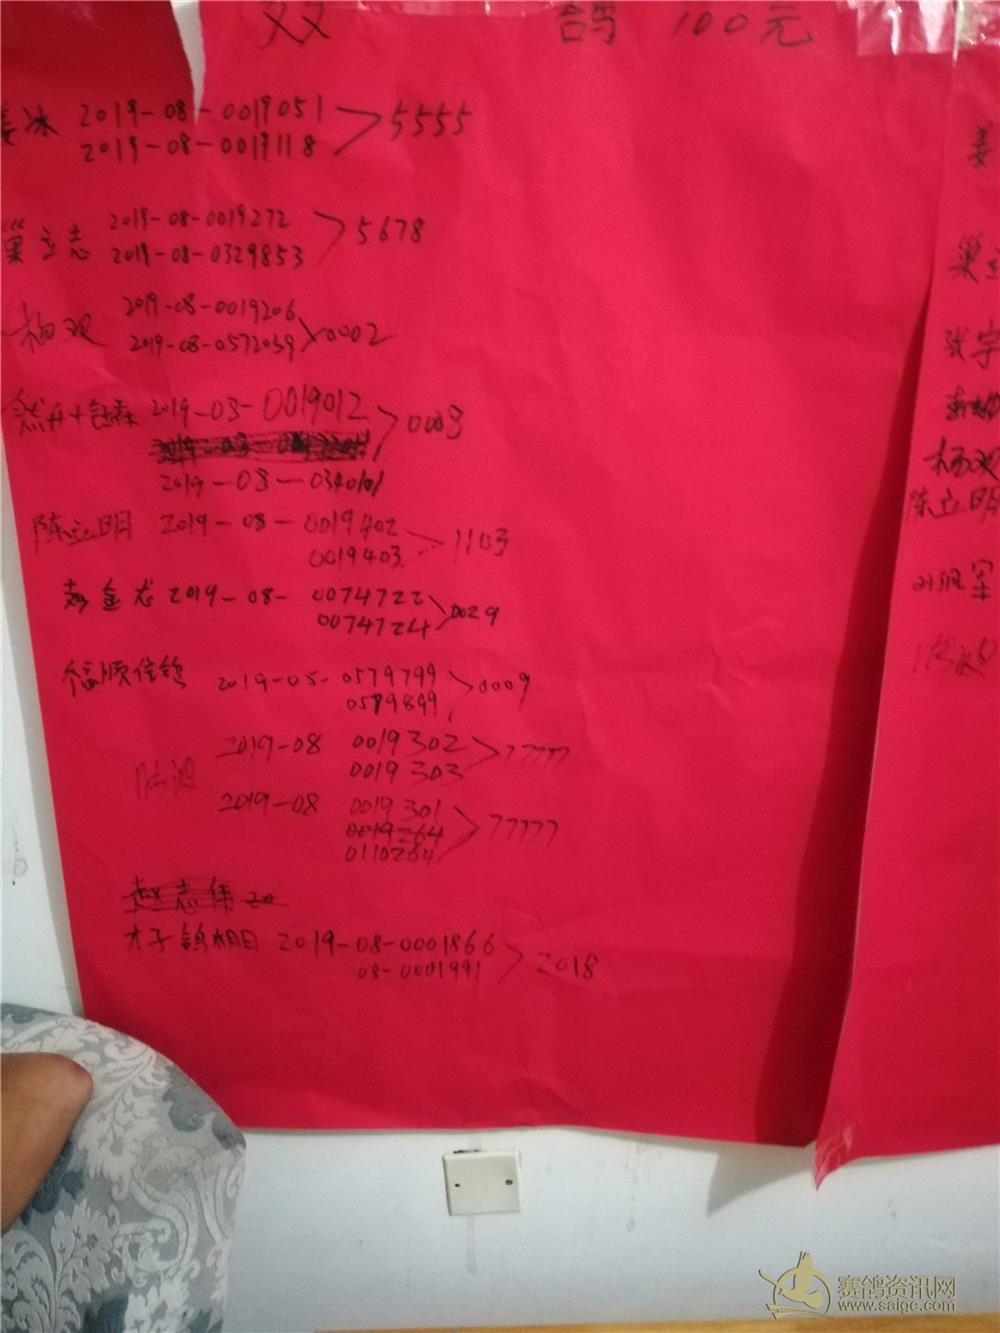 双 鸽 100元
姜冰 2019-08-0019051 > 5555
2019-08-0019118
巢立志 2019-08-0019272 > 5678
2019-08-0329853
杨双 2019-08-0019206 > 0002
2019-08-0572039
2019-08-0019012 > 0008
2019-08-0340101
陈立明 2019-08-0019402 > 1103
0019403
金龙 2019-08-0074722 > 0029
0074724
福顺信鸽 2019-08-0579799 > 0009
0579899
2019-08 0019302 > 77777
0019303
2019-08 0019301 > 77777
0019264
0110264
赵志伟 20
才子鸽棚 2019-08-0001866 > 2018
08-0001991
姜
巢立
张宇
杨双
陈立明
军
赛鸽资讯网
www.saige.com